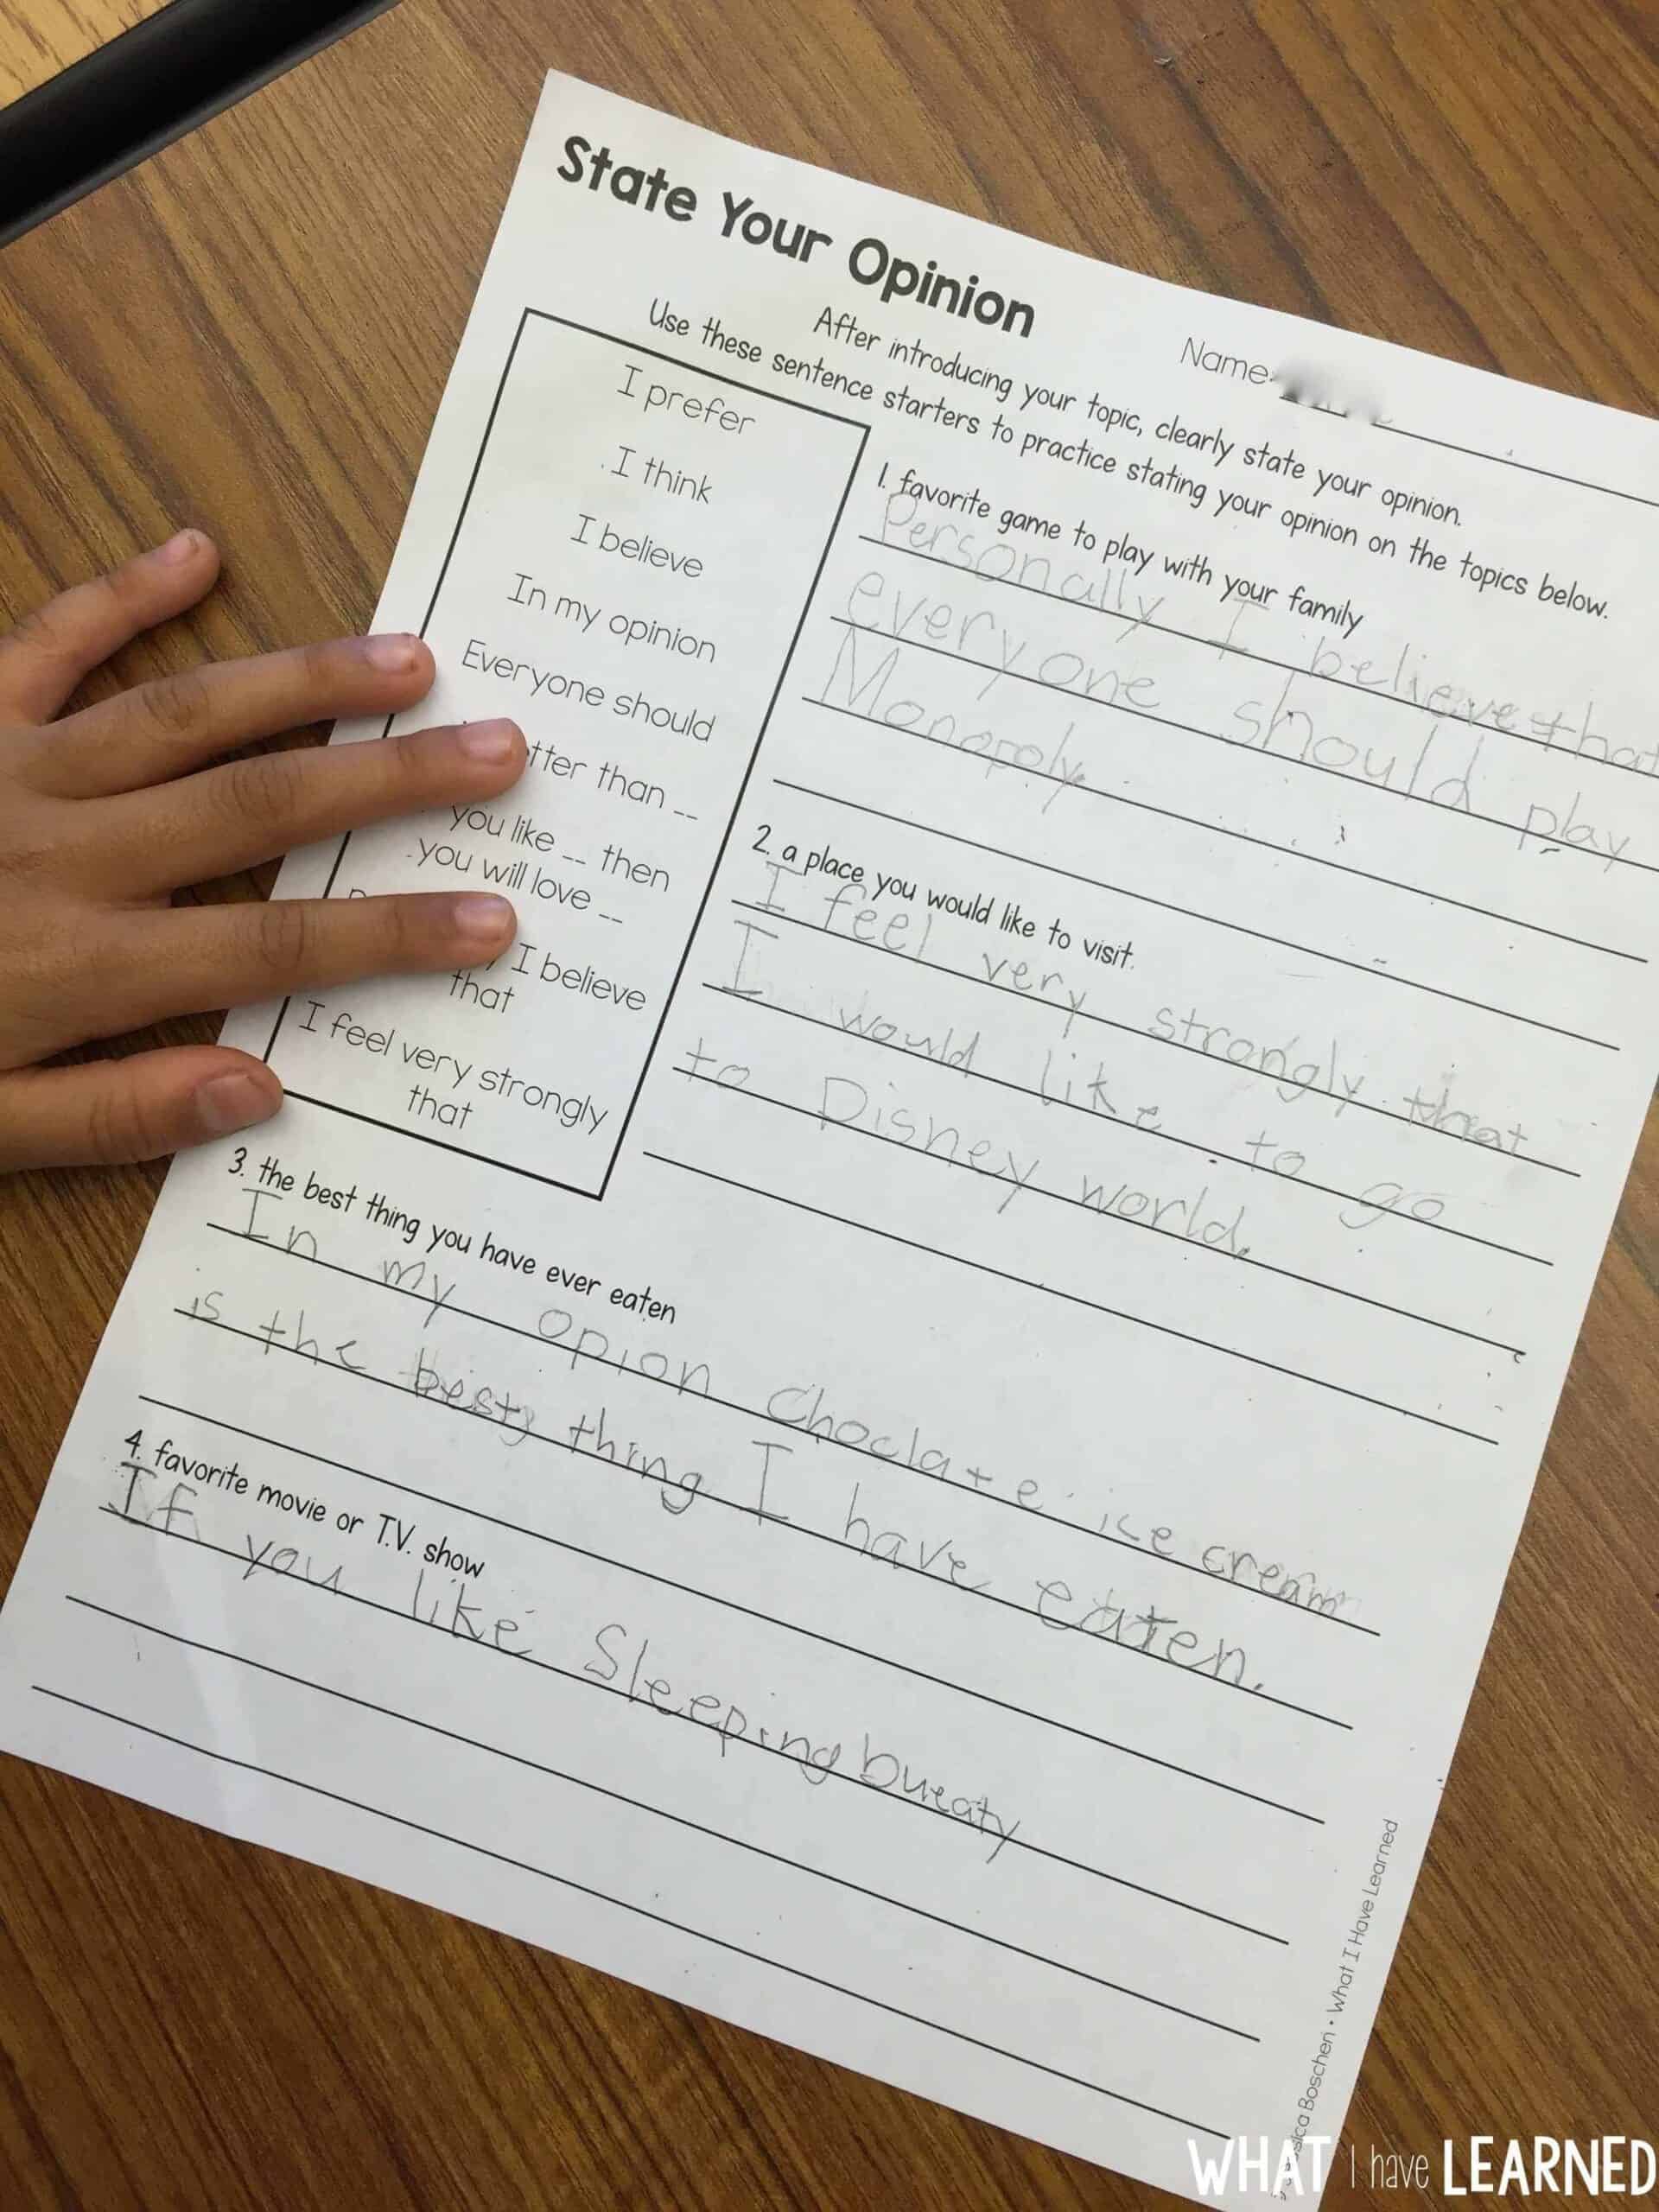 State Your Opinion
Name
After introducing your topic, clearly state your opinion.
Use these sentence starters to practice stating your opinion on the topics below.
I prefer
I think
I believe
In my opinion
Everyone should
than __
you like __ then
you will love __
I believe
that
I feel very strongly
that
1. favorite game to play with your family
Personally I believe that
everyone should play
Monopoly.
2. a place you would like to visit.
I feel very strongly that
I would like to go
to Disney world.
3. the best thing you have ever eaten
In my opion Choclate ice cream
is the best thing I have eaten.
4. favorite movie or T.V. show
If you like Sleeping bueaty
Boschen • What I Have Learned
WHAT I have LEARNED